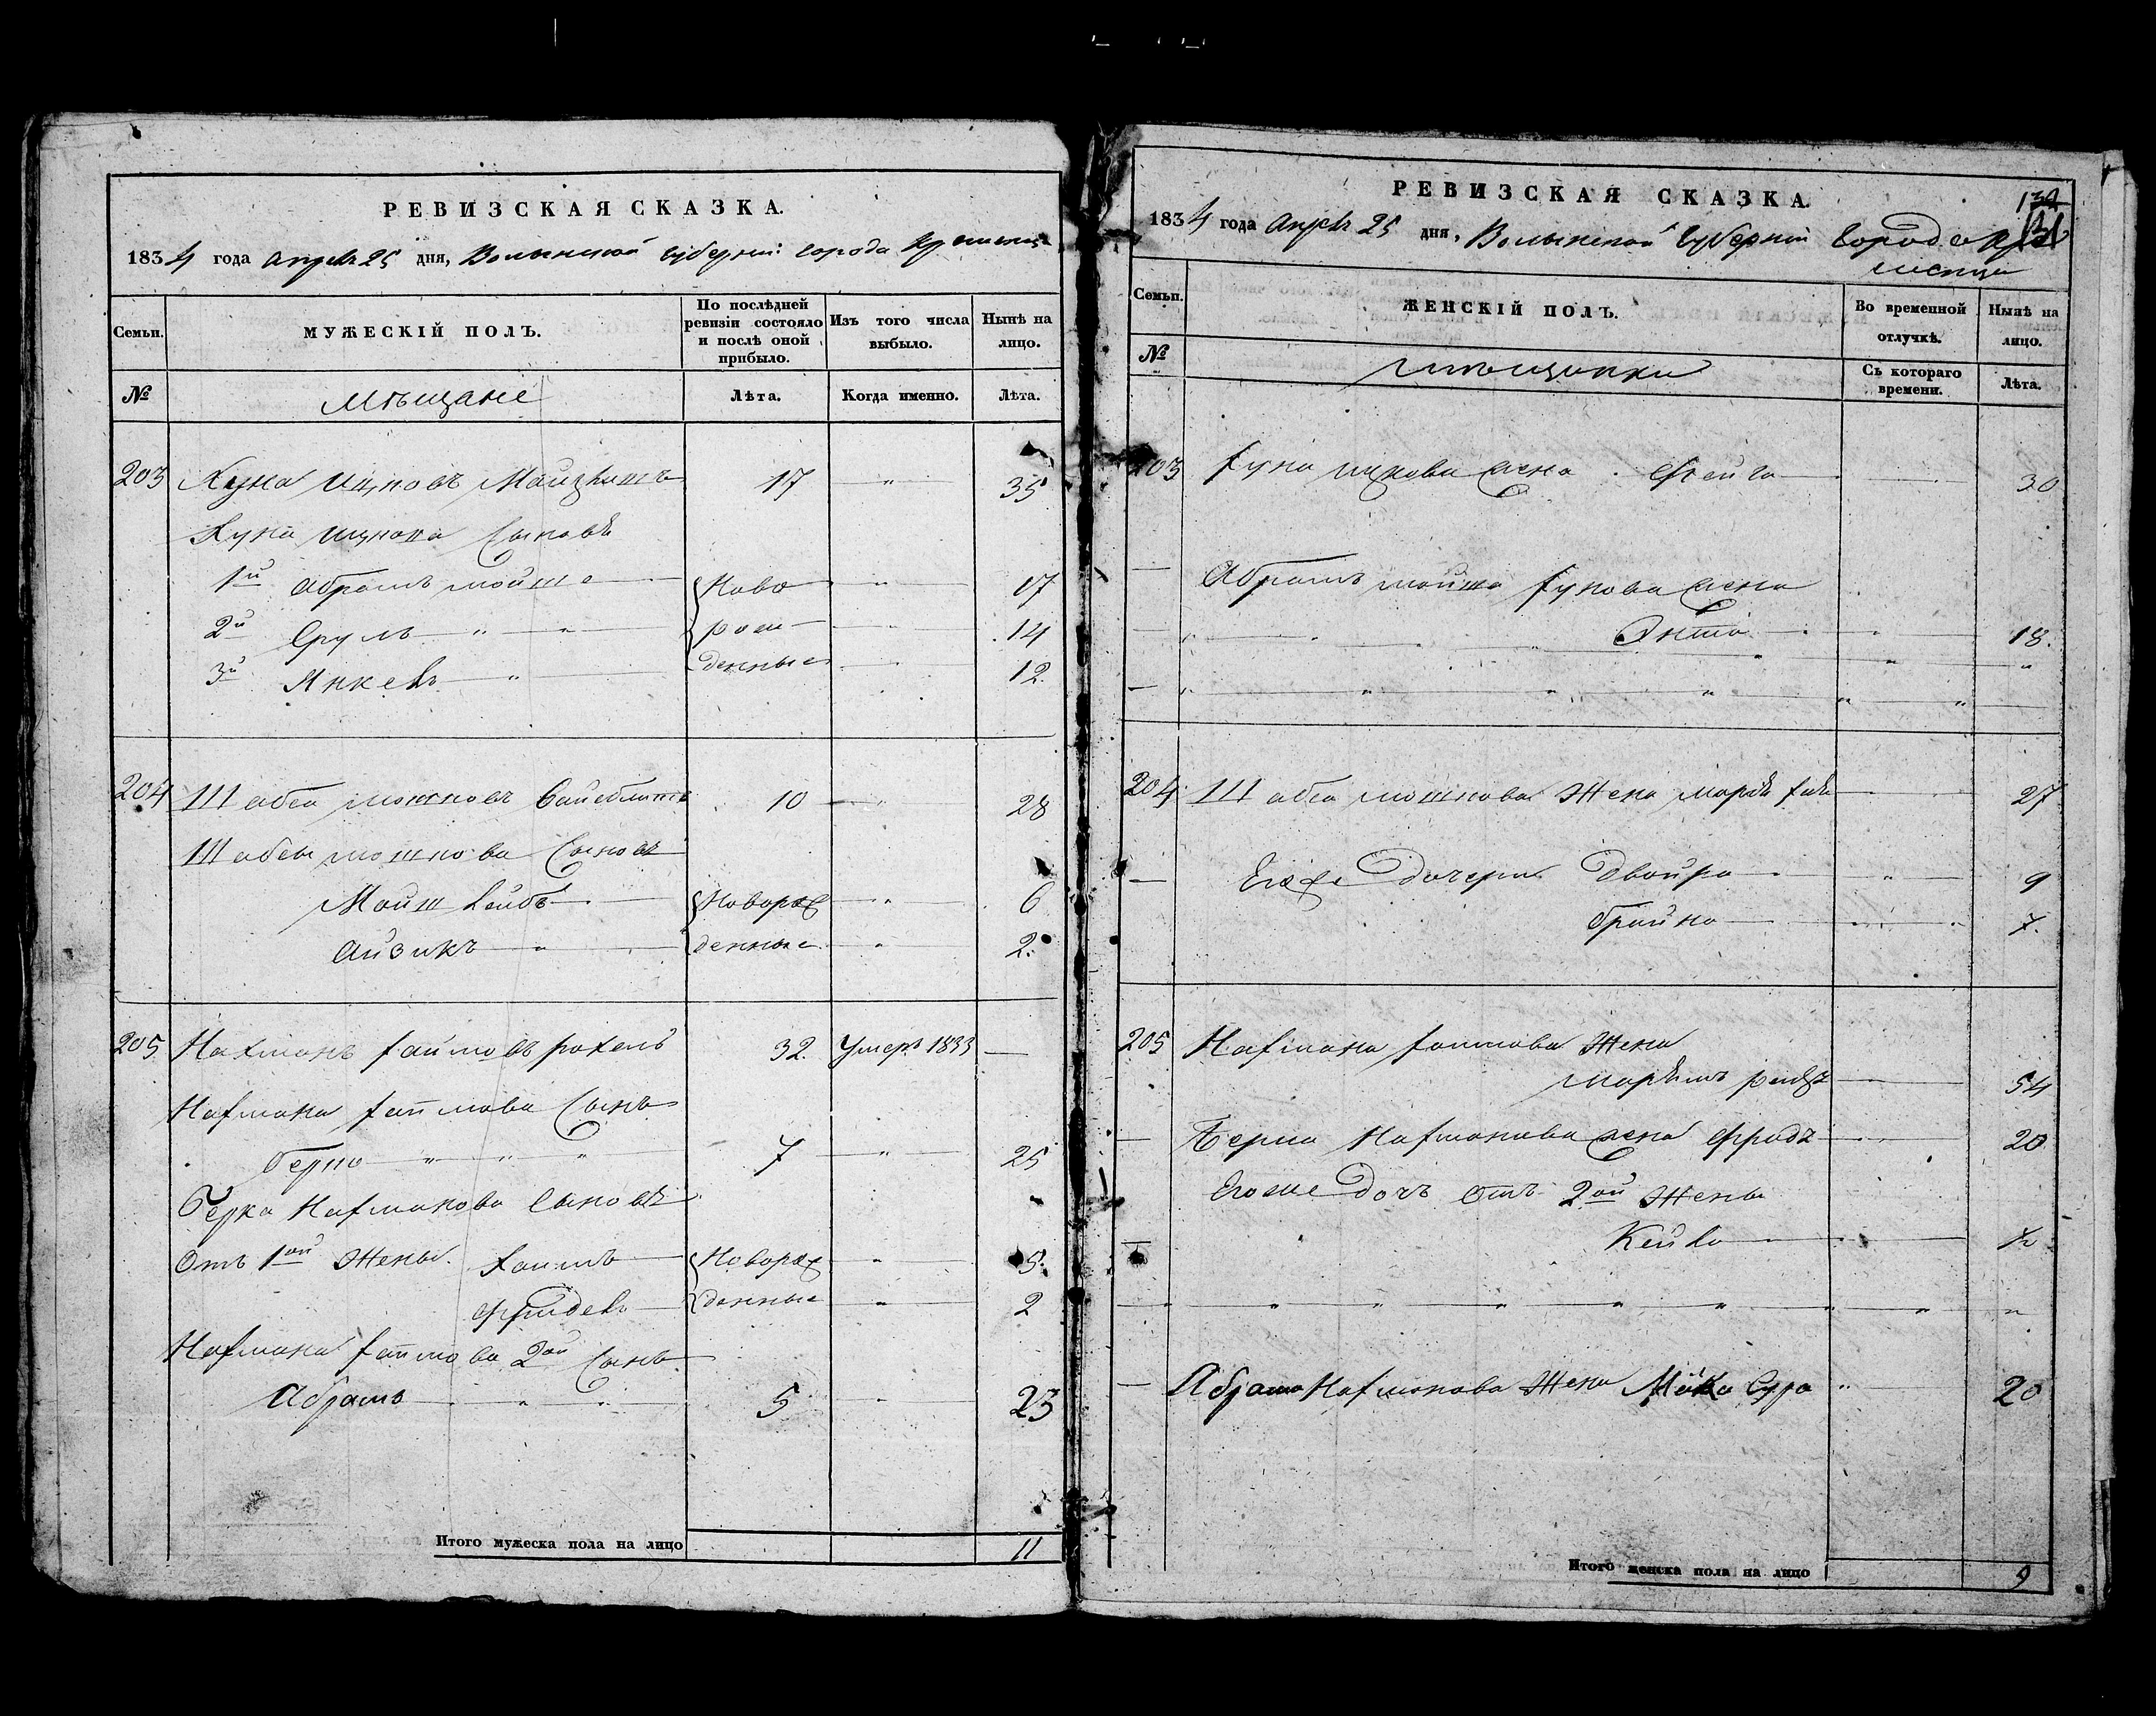 РЕВИЗСКАЯ СКАЗКА.
1834 года апреля 25 дня, Волынской губернии города Кременца
Семьи.
МУЖЕСКІЙ ПОЛЪ.
По послѣдней ревизіи состояло и послѣ оной прибыло.
Изъ того числа выбыло.
Нынѣ на лицо.
№
Мѣщане
Лѣта.
Когда именно.
Лѣта.
203 Хуна Ицковъ 17 " 35
Хуна Ицкова сыновѣ
1й Абрамъ Мойше Ново " 17
2й Сруль " " рож 14
3й Янкель " денные 12.
204 Шабса Мошковъ 10 " 28
Шабсы Мошкова сыновѣ
Мойш Лейбъ Новорож " 6
Айзикъ " денные " 2.
205 Нахманъ Хаимовъ 32. Умеръ 1833 —
Нахмана Хаимова сынъ
Берко " " " 7 " 25
Берка Нахманова сыновѣ
Отъ 1ой жены. Хаимъ Новорож " 5.
Фридель денные " 2
Нахмана Хаимова 2ой сынъ
Абрамъ " " 5 " 23
Итого мужеска пола на лицо 11
РЕВИЗСКАЯ СКАЗКА.
131
1834 года апреля 25 дня, Волынской губерніи города Кре
менца
Семьи.
ЖЕНСКІЙ ПОЛЪ.
Во временной отлучкѣ.
Нынѣ на лицо.
№
мѣщанки
Съ котораго времени.
Лѣта.
203 Хуна Ицкова жена Фейга 30
— Абрамъ Мойша Хунова жена
Энта 18.
204 Шабса Мошкова жена 27
— Егоже дочери Двойра " 9
Брайна 7.
205 Нахмана Хаимова жена
Марьямъ 54
— Берка Нахманова жена Фрадя 20
Егоже дочь отъ 2ой жены
— Кейла ½
— Абрама Нахманова жена Сура " 20
Итого женска пола на лицо 9